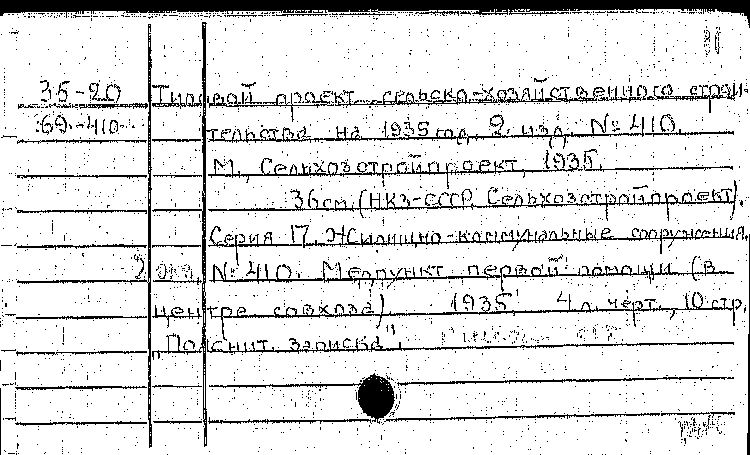 35-20 Типовой проект сельско-хозяйственного строи-
69-410 тельства на 1935 год. 2. изд. № 410.
М., Сельхозстройпроект, 1935.
36см. (НКЗ-СССР. Сельхозстройпроект).
Серия П. Жилищно-коммунальные сооружения.
2 экз. № 410. Медпункт первой помощи (в
центре совхоза). 1935. 4 л. черт., 10 стр.
"Пояснит. записка".